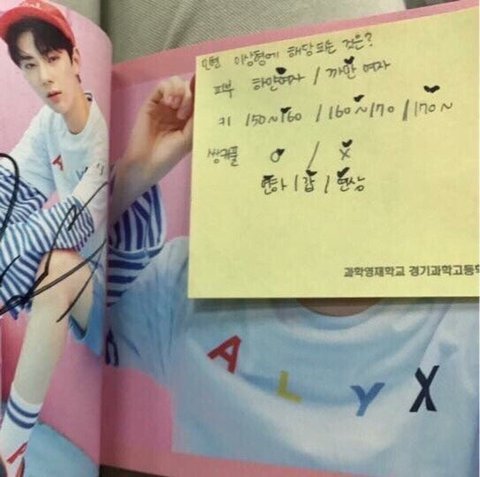 민현 이상형에 해당되는 것은?
피부 하얀여자 / 까만 여자
키 150~160 / 160~170 / 170~
쌍커풀 O / X
연하 / 갑 / 연상
과학영재학교 경기과학고등학
A L Y X